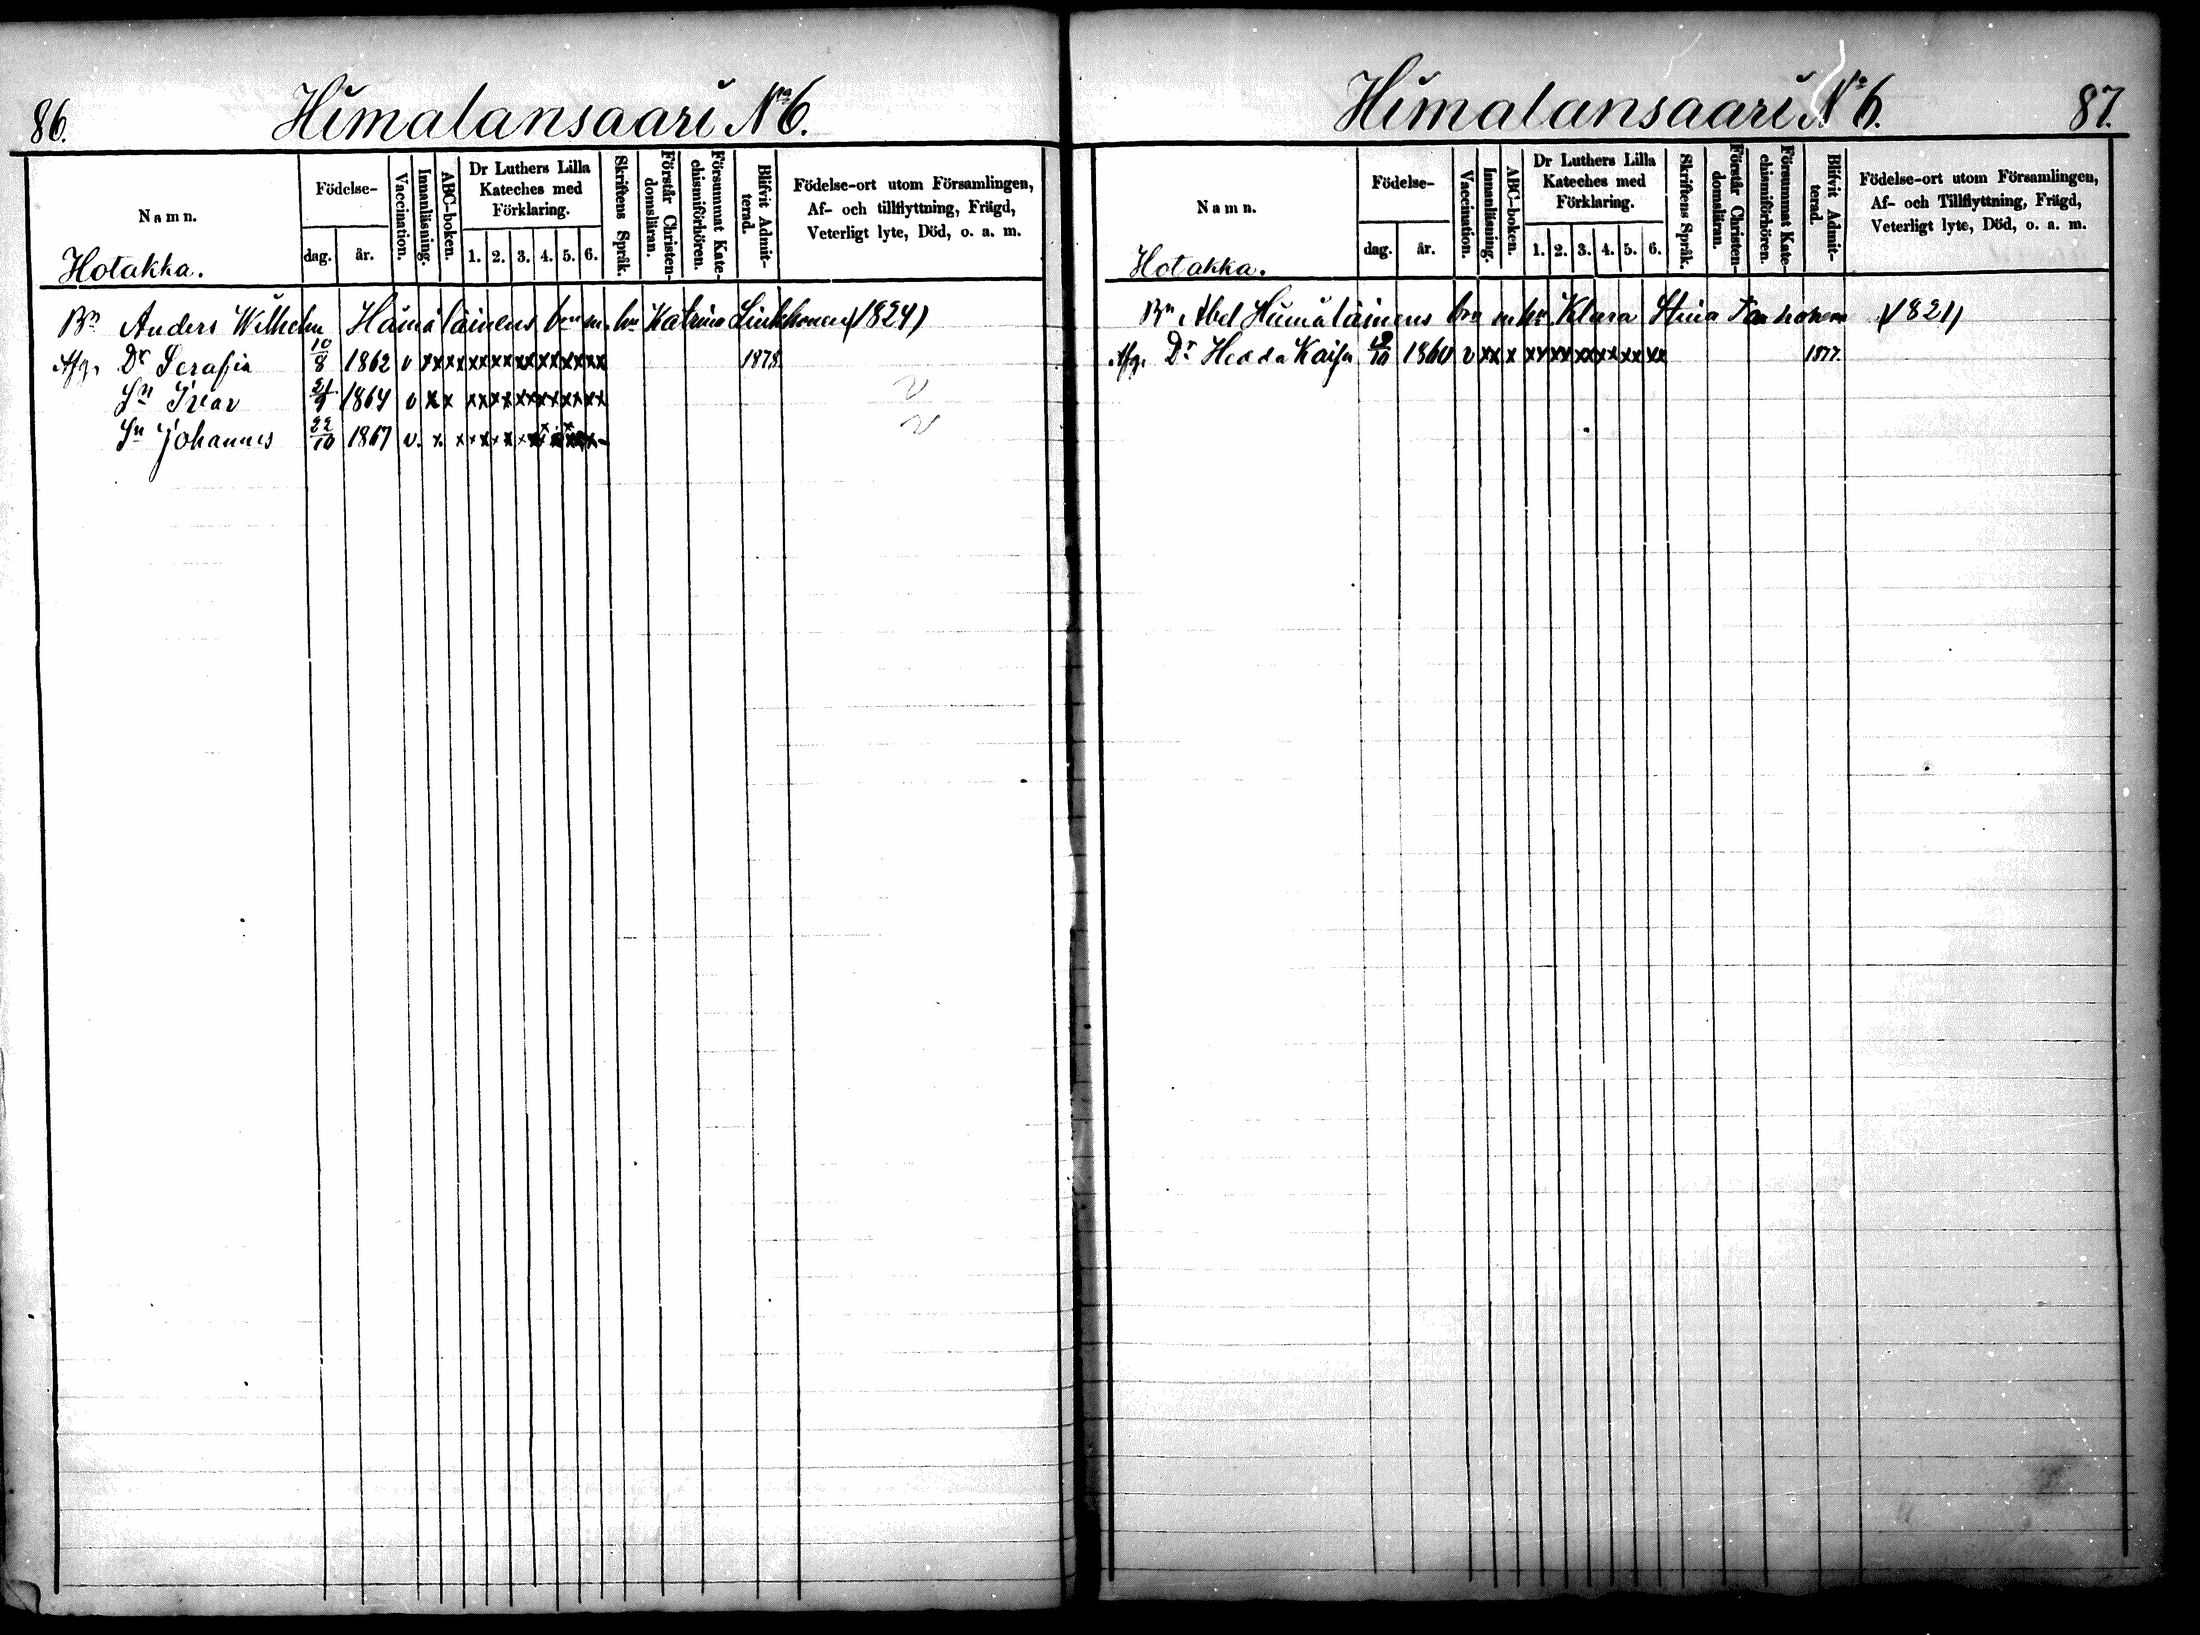 86.
Himalansaari No 6.
Namn.
Födelse-
dag.
år.
Vaccination.
Innanläsning.
ABC-boken.
Dr Luthers Lilla
Kateches med
Förklaring.
1. 2. 3. 4. 5. 6.
Skriftens Språk.
Förstår Christen-
domsläran.
Försummat Kate-
chismiförhören.
Blifvit Admit-
terad.
Födelse-ort utom Församlingen,
Af- och tillflyttning, Frägd,
Veterligt lyte, Död, o. a. m.
Hotakka.
Bn Anders Wilhelm Hämäläinens bn m. hu Katrina (1824)
Afg. Dr Serafia 10/8 1862 v xx xx xx xx xx xx xx xx 1878
Sn Ivar 21/9 1864 v x x xx xx xx xx xx xx
Sn Johannes 22/10 1867 v. x x
87.
Himalansaari No 6.
Namn.
Födelse-
dag.
år.
Vaccination.
Innanläsning.
ABC-boken.
Dr Luthers Lilla
Kateches med
Förklaring.
1. 2. 3. 4. 5. 6.
Skriftens Språk.
Förstår Christen-
domsläran.
Försummat Kate-
chismiförhören.
Blifvit Admit-
terad.
Födelse-ort utom Församlingen,
Af- och Tillflyttning, Frägd,
Veterligt lyte, Död, o. a. m.
Hotakka.
Bn Abel Hämäläinens bn m hu Klara Stina (1821)
Afg. Dr Hedda Kaisa 1860 v xx x xx xx xx xx xx xx 1877.